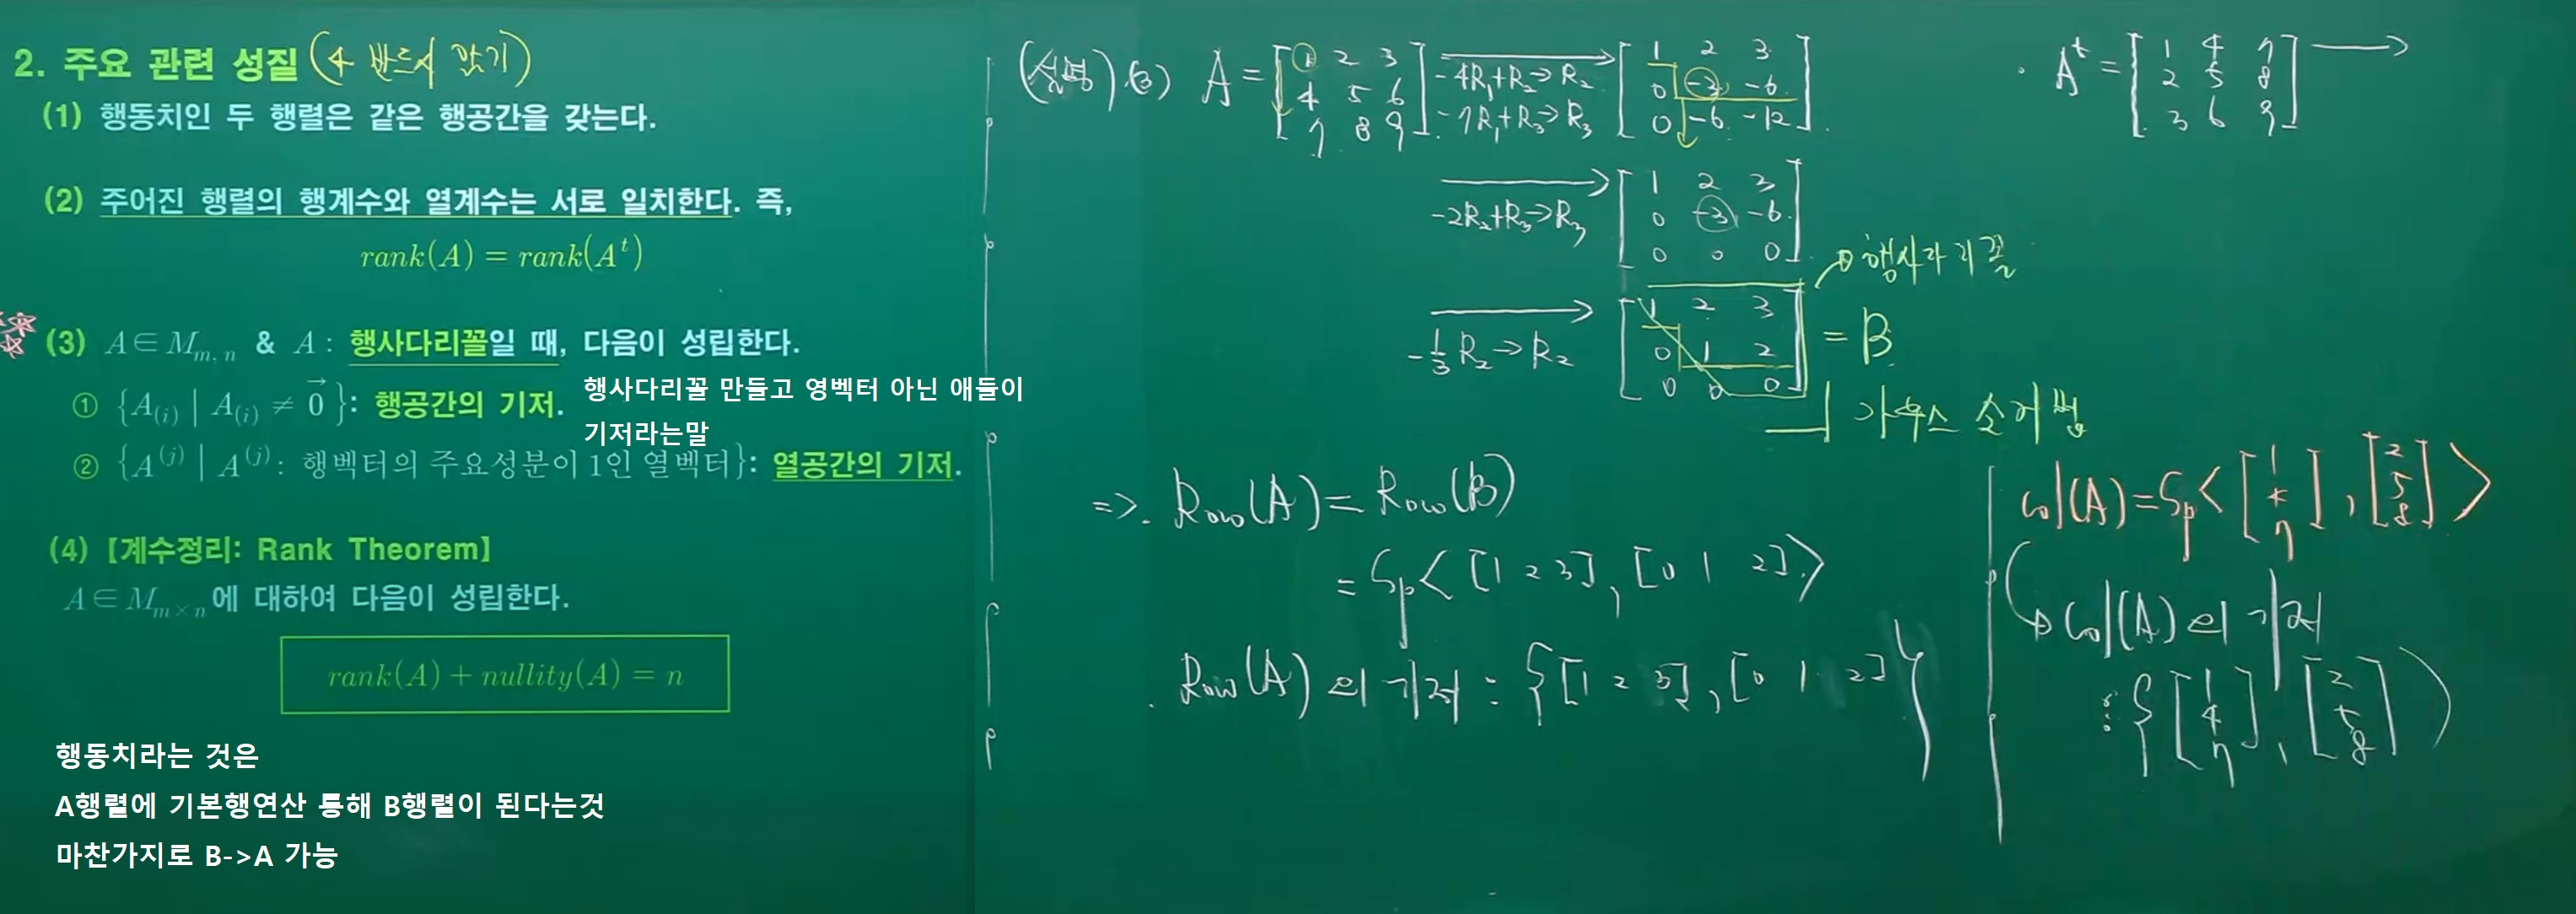 2. 주요 관련 성질 (4 반드시 암기)
(1) 행동치인 두 행렬은 같은 행공간을 갖는다.
(2) 주어진 행렬의 행계수와 열계수는 서로 일치한다. 즉,
rank(A) = rank(Aᵗ)
(3) A ∈ Mₘ,ₙ & A : 행사다리꼴일 때, 다음이 성립한다.
① {A₍ᵢ₎ | A₍ᵢ₎ ≠ 0⃗ }: 행공간의 기저.
행사다리꼴 만들고 영벡터 아닌 애들이
기저라는말
② {A⁽ʲ⁾ | A⁽ʲ⁾ : 행벡터의 주요성분이 1인 열벡터}: 열공간의 기저.
(4) 【계수정리: Rank Theorem】
A ∈ Mₘ×ₙ에 대하여 다음이 성립한다.
rank(A) + nullity(A) = n
행동치라는 것은
A행렬에 기본행연산 통해 B행렬이 된다는것
마찬가지로 B->A 가능
(설명) (3) A = [1 2 3; 4 5 6; 7 8 9] -4R₁+R₂→R₂ -7R₁+R₃→R₃ [1 2 3; 0 -3 -6; 0 -6 -12]
-2R₂+R₃→R₃ [1 2 3; 0 -3 -6; 0 0 0]
-1/3 R₂→R₂ [1 2 3; 0 1 2; 0 0 0] = B
행사다리꼴
가우스 소거법
=> · Row(A) = Row(B)
= Sp< [1 2 3], [0 1 2] >
· Row(A)의 기저 : {[1 2 3], [0 1 2]}
· Aᵗ = [1 4 7; 2 5 8; 3 6 9] →
Col(A) = Sp< [1; 4; 7], [2; 5; 8] >
→ Col(A)의 기저
: {[1; 4; 7], [2; 5; 8]}